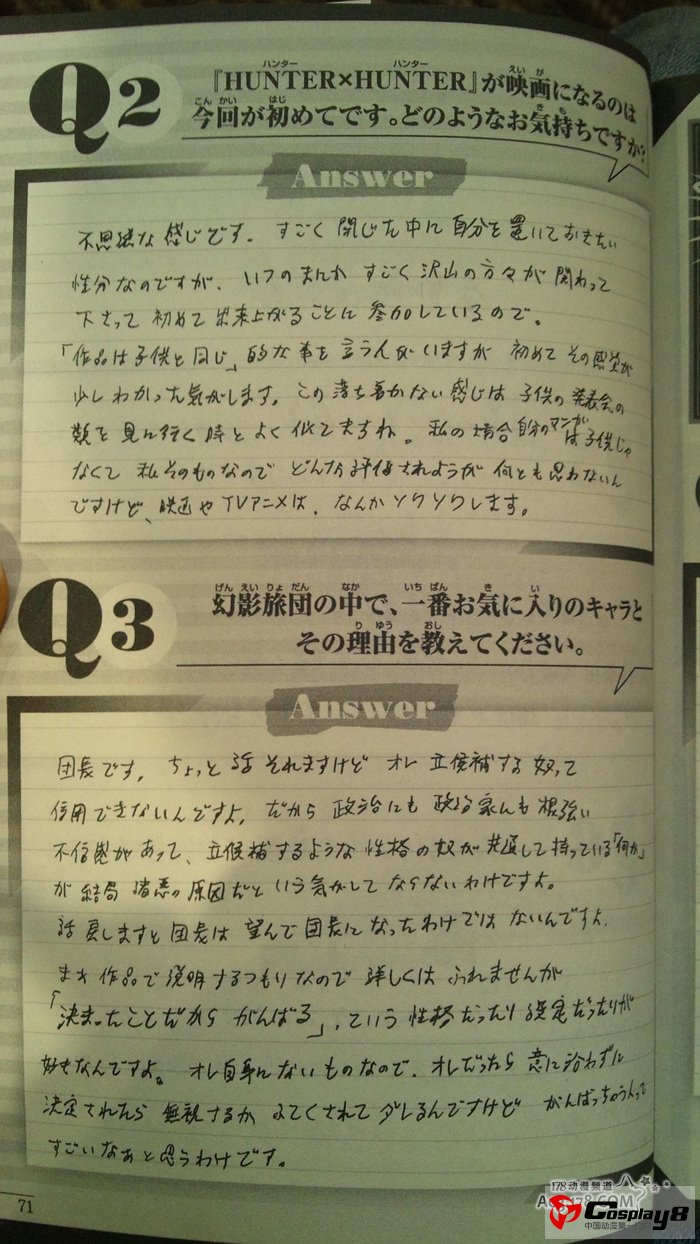 Q2
『HUNTER×HUNTER』が映画になるのは
今回が初めてです。どのようなお気持ちですか?
Answer
不思議な感じです。すごく閉じた中に自分を置いておきたい
性分なのですが、いつのまにかすごく沢山の方々が関わって
下さって初めて出来上がることに参加しているので。
「作品は子供と同じ」的な事を言う人がいますが初めてその感覚が
少しわかった気がします。この落ち着かない感じは子供の発表会の
類を見に行く時とよく似てますね。私の場合自分のマンガは子供じゃ
なくて私そのものなのでどんな評価されようが何とも思わないん
ですけど、映画やTVアニメは、なんかソワソワします。
Q3
幻影旅団の中で、一番お気に入りのキャラと
その理由を教えてください。
Answer
団長です。ちょっと話それますけどオレ立候補する奴って
信用できないんですよ。だから政治にも政治家にも根強い
不信感があって、立候補するような性格の奴が共通して持っている「何か」
が結局諸悪の原因だという気がしてならないわけですよ。
話戻しますと団長は望んで団長になったわけではないんですよ。
まあ作品で説明するつもりなので詳しくはふれませんが
「決まったことだからがんばる」、ていう性格だったり設定だったりが
好きなんですよ。オレ自身にないものなので。オレだったら意に沿わずに
決定されたら無視するかふてくされてダレるんですけどがんばっちゃう人って
すごいなあと思うわけです。
71
178动漫频道
Cosplay8